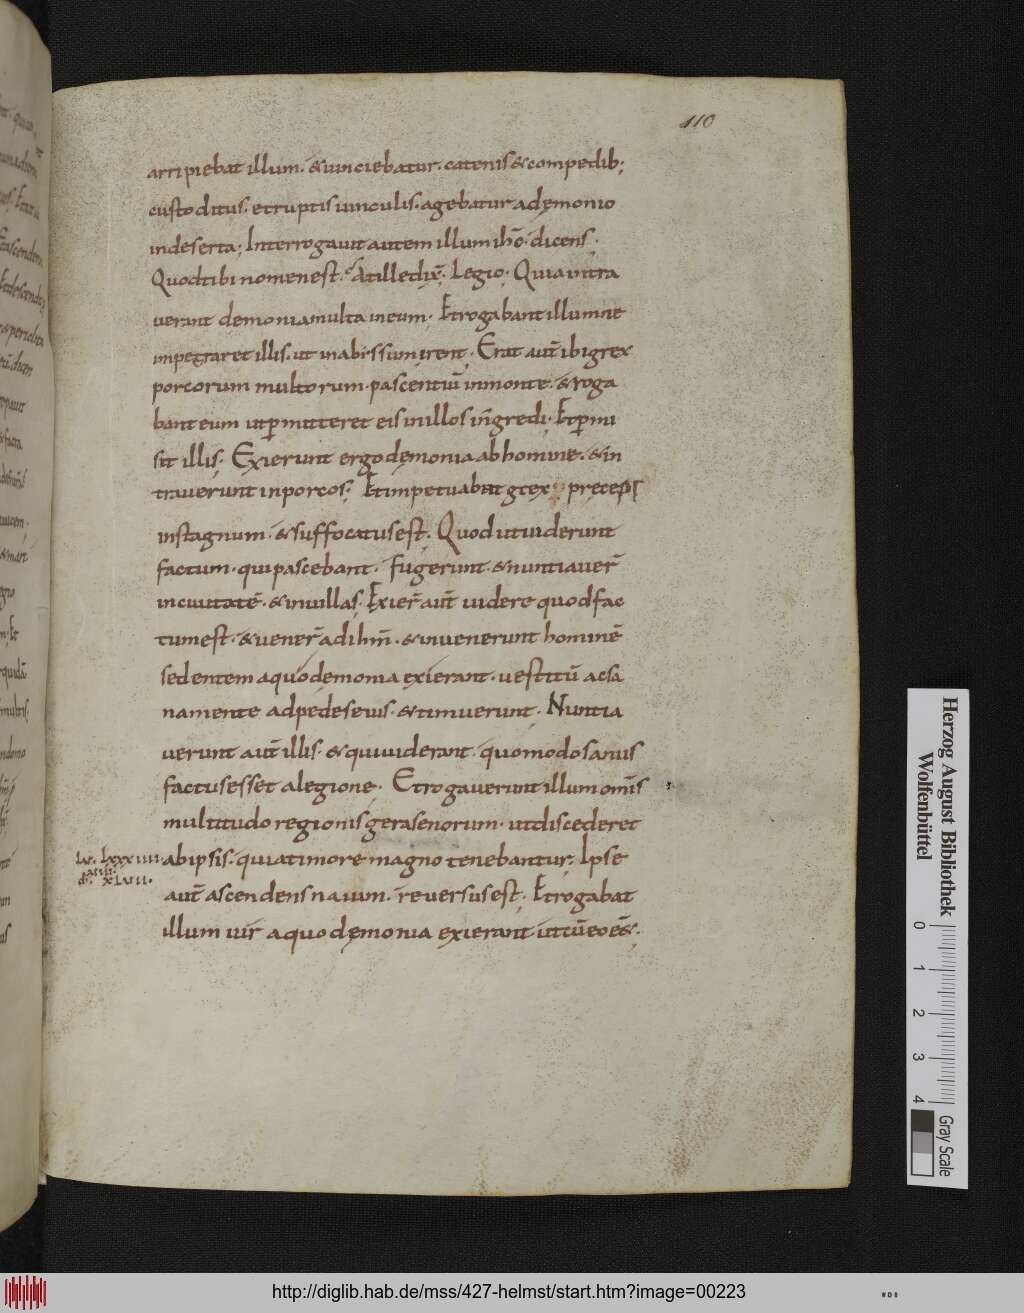 110
arripiebat illum · & uinciebatur · catenis & compedib;
custoditus · et ruptis uinculis · agebatur a dęmonio
in deserta; Interrogauit autem illum ihc̄ · dicens ·
Quod tibi nomen est · At ille dix̄ · Legio · Quia intra
uerant demonia multa in eum · Et rogabant illum ne
impetraret illis · ut in abissum irent · Erat aut̄ ibi grex
porcorum multorum · pascentiū in monte · & roga
bant eum ut ꝑmitteret eis in illos in̄gredi · Et ꝑmi
sit illis · Exierunt ergo dęmonia ab homine · & in
trauerunt in porcos; Et impetu abiit grex preceps
in stagnum · & suffocatus est · Quod ut uiderunt
factum · qui pascebant · fugerunt · & nuntiauer̄
in ciuitatē · & in uillas · Exier̄ aut̄ uidere quod fac
tum est · & uener̄ ad ihm̄ · & inuenerunt hominē
sedentem a quo dęmonia exierant · uestitū ac sa
na mente ad pedes eius · & timuerunt · Nuntia
uerunt aut̄ illis · & qui uiderant · quomodo sanus
factus esset a legione · Et rogauerunt illum omīs
multitudo regionis gerasenorum · ut discederet
ab ipsis · quia timore magno tenebantur; Ipse
aut̄ ascendens nauim · reuersus est · Et rogabat
illum uir a quo dęmonia exierant ut cū eo eēt ·
Lxxxiiii
xLvii ·
Herzog August Bibliothek
Wolfenbüttel
0 1 2 3 4
Gray Scale
http://diglib.hab.de/mss/427-helmst/start.htm?image=00223
WDB